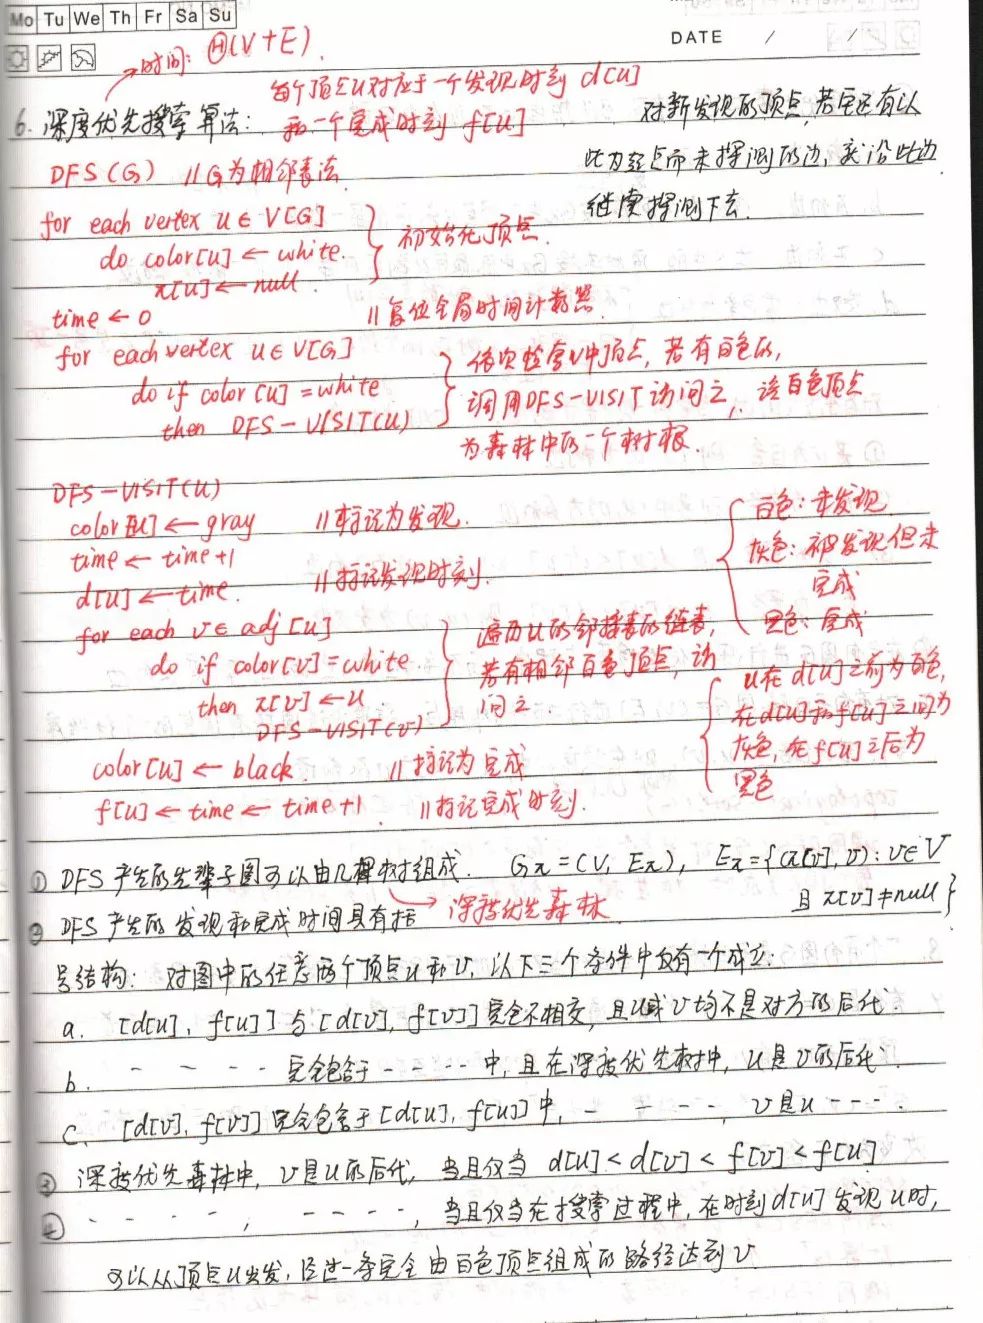 Mo Tu We Th Fr Sa Su
DATE / /
时间: Θ(V+E).
每个顶点u对应于一个发现时刻 d[u]
6. 深度优先搜索算法: 和一个完成时刻 f[u]
对新发现的顶点,若它还有以
此为起点而未探测的边,就沿此边
继续探测下去.
DFS(G) //G为相邻表法
for each vertex u ∈ V[G]
do color[u] ← white.
π[u] ← null.
初始化顶点.
time ← 0 //复位全局时间计数器.
for each vertex u ∈ V[G]
do if color[u] = white
then DFS-VISIT(u)
依次检查V中顶点,若有白色的,
调用DFS-VISIT访问之,该白色顶点
为森林中的一个树根.
DFS-VISIT(u)
color[u] ← gray //标记为发现.
time ← time+1
d[u] ← time. //标记发现时刻.
白色:未发现
灰色:被发现但未
完成
黑色:完成
for each v ∈ adj[u]
do if color[v] = white
then π[v] ← u
DFS-VISIT(v)
遍历u的邻接表的链表,
若有相邻白色顶点,访
问之
color[u] ← black //标记为完成
f[u] ← time ← time+1. //标记完成时刻.
u在d[u]之前为白色,
在d[u]和f[u]之间为
灰色,在f[u]之后为
黑色
① DFS 产生的先辈子图可以由几棵树组成. Gπ = (V, Eπ), Eπ = {(π[v], v): v∈V
且 π[v] ≠ null}
→ 深度优先森林
② DFS 产生的发现和完成时间具有括
号结构: 对图中的任意两个顶点u和v,以下三个条件中仅有一个成立:
a. [d[u], f[u]] 与 [d[v], f[v]] 完全不相交,且u或v均不是对方的后代.
b. - - - - 完全包含于 - - - - 中,且在深度优先树中,u是v的后代.
c. [d[v], f[v]] 完全包含于 [d[u], f[u]] 中, - - - -, v是u - - -.
③ 深度优先森林中,v是u的后代,当且仅当 d[u] < d[v] < f[v] < f[u]
④ - - - -, - - - -,当且仅当在搜索过程中,在时刻d[u]发现u时,
可以从顶点u出发,经过一条完全由白色顶点组成的路径达到v